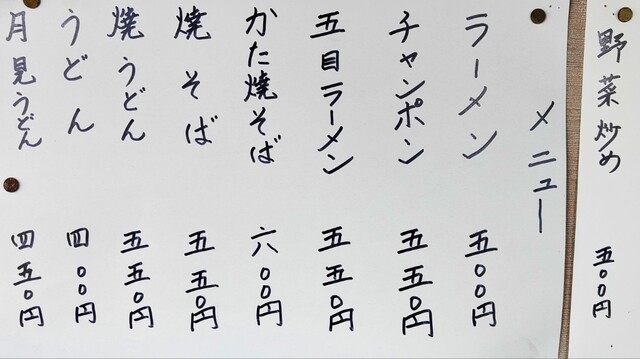 野菜炒め 五〇〇円
メニュー
ラーメン 五〇〇円
チャンポン 五五〇円
五目ラーメン 五五〇円
かた焼そば 六〇〇円
焼そば 五五〇円
焼うどん 五五〇円
うどん 四〇〇円
月見うどん 四五〇円